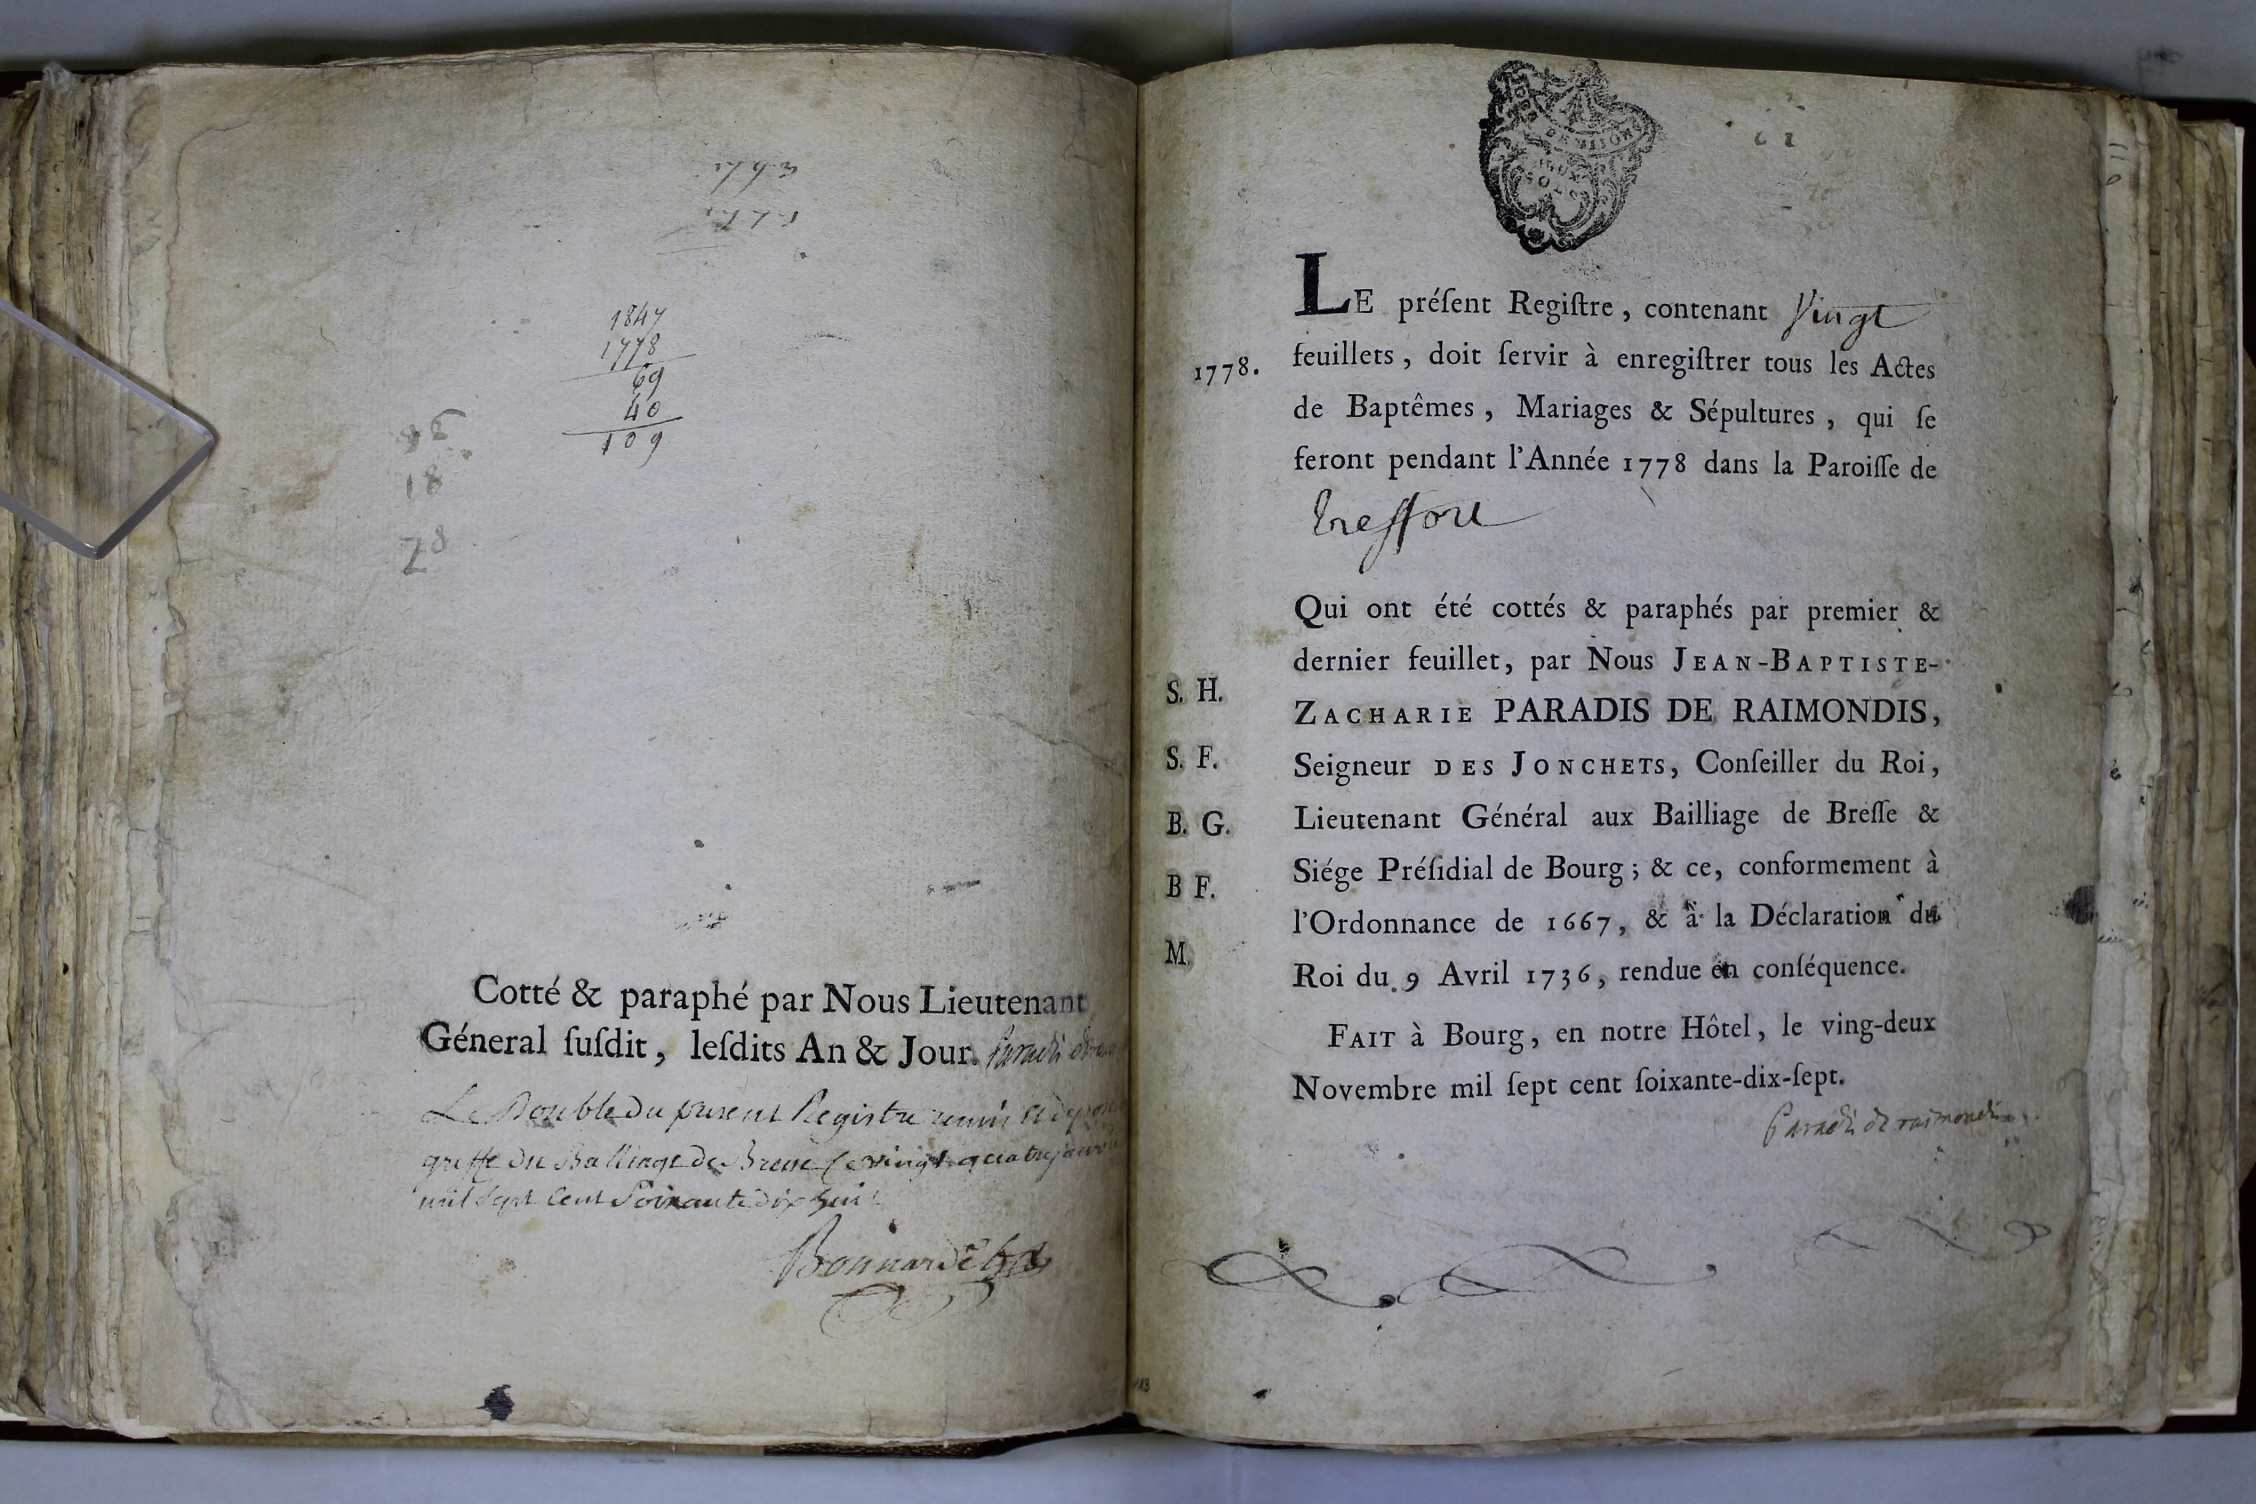 1793
1771
1847
1778
69
40
109
18
78
Cotté & paraphé par Nous Lieutenant
Géneral ſuſdit, leſdits An & Jour.
Le Double du present Registre remis et
greffe du Balliage de Bresse le vingt quatre janvier
mil sept cent soixante dix huit
Bonnardet
LE préſent Regiſtre, contenant Vingt
1778.
feuillets, doit ſervir à enregiſtrer tous les Actes
de Baptêmes, Mariages & Sépultures, qui ſe
feront pendant l'Année 1778 dans la Paroiſſe de
treffort
Qui ont été cottés & paraphés par premier &
dernier feuillet, par Nous JEAN-BAPTISTE-
ZACHARIE PARADIS DE RAIMONDIS,
Seigneur DES JONCHETS, Conſeiller du Roi,
Lieutenant Général aux Bailliage de Breſſe &
Siége Préſidial de Bourg; & ce, conformement à
l'Ordonnance de 1667, & à la Déclaration du
Roi du 9 Avril 1736, rendue en conſéquence.
S. H.
S. F.
B. G.
B F.
M.
FAIT à Bourg, en notre Hôtel, le ving-deux
Novembre mil ſept cent ſoixante-dix-ſept.
Paradis de raimondis